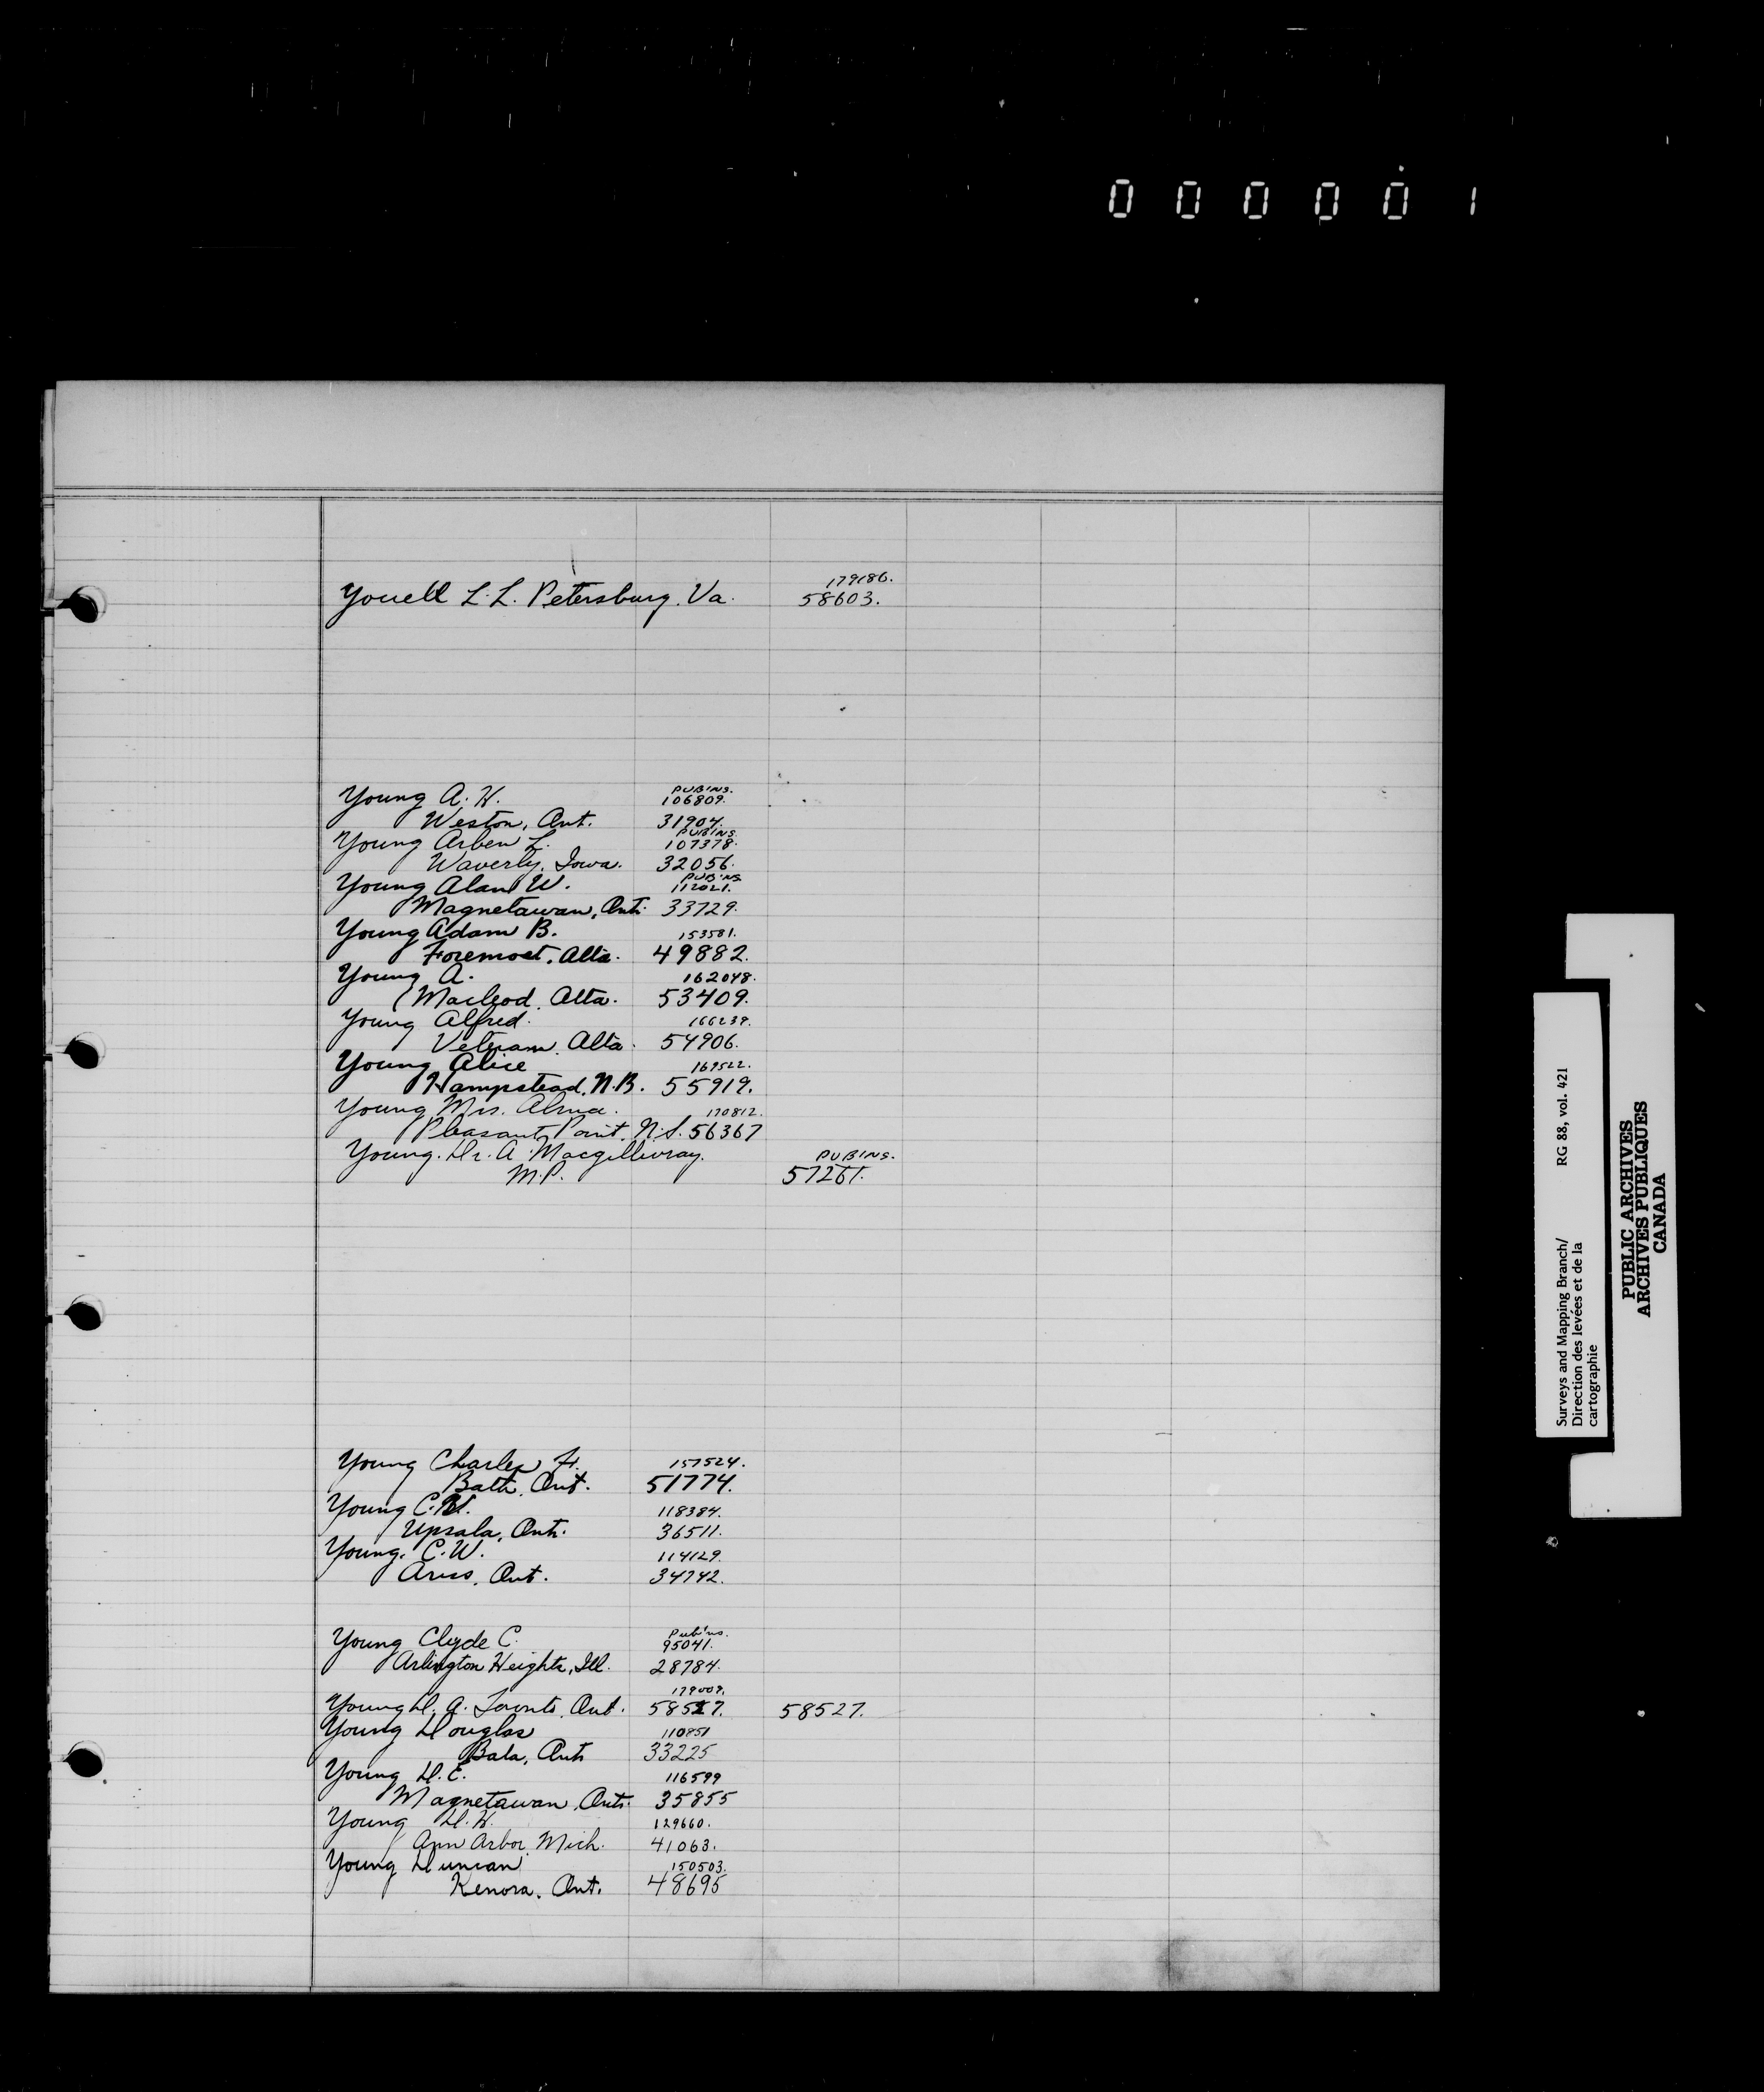 0 0 0 0 0 1
179186.
Youell L. L. Petersburg. Va. 58603.
Young A. H. PUBINS. 106809.
Weston, Ont. 31904.
Young Arben L. PUBINS. 107378.
Waverly, Iowa. 32056.
Young Alan W. PUBINS. 112021.
Magnetawan, Ont. 33729.
Young Adam B. 153581.
Foremost, Alta. 49882.
Young A. 162048.
Macleod, Alta. 53409.
Young Alfred. 166239.
Veteran, Alta. 54906.
Young Alice 169522.
Hampstead, N.B. 55919.
Young Mrs. Alma. 170812.
Pleasant Point, N.S. 56367
Young. Dr. A. Macgillivray. PUBINS.
M.P. 57261.
Young Charles F. 157524.
Bath, Ont. 51774.
Young C. 118384.
Upsala, Ont. 36511.
Young. C.W. 114129.
Ariss, Ont. 34742.
Young Clyde C. Pubins. 95041.
Arlington Heights, Ill. 28784.
179009.
Young D. A. Toronto, Ont. 58527. 58527.
Young Douglas 110851
Bala, Ont. 33225
Young D.E. 116599
Magnetawan, Ont. 35855
Young D.H. 129660.
Ann Arbor, Mich. 41063.
Young Duncan 150503.
Kenora, Ont. 48695
Surveys and Mapping Branch/ RG 88, vol. 421
Direction des levées et de la
cartographie
PUBLIC ARCHIVES
ARCHIVES PUBLIQUES
CANADA